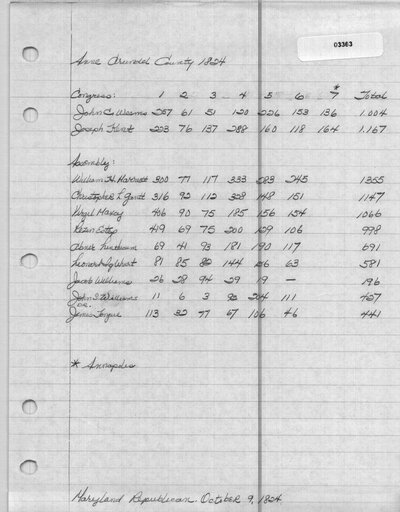 03363
Anne Arundel County 1824
Congress: 1 2 3 4 5 6 *7 Total
John C. Weems 257 61 51 120 226 153 136 1.004
Joseph Kent 223 76 137 288 160 118 164 1.167
Assembly:
William H. Marriott 300 77 117 333 283 245 1355
Christopher L. Gantt 316 92 112 328 148 151 1147
Virgil Maxcy 406 90 75 185 156 154 1066
Rezin Estep 419 69 75 200 129 106 998
Abner Linthicum 69 41 93 181 190 117 691
Leonard Iglehart 81 85 82 144 126 63 581
Jacob Williams 26 28 94 29 19 — 196
John S. Williams 11 6 3 92 204 111 427
James Tongue 113 32 77 67 106 46 441
* Annapolis
Maryland Republican, October 9, 1824